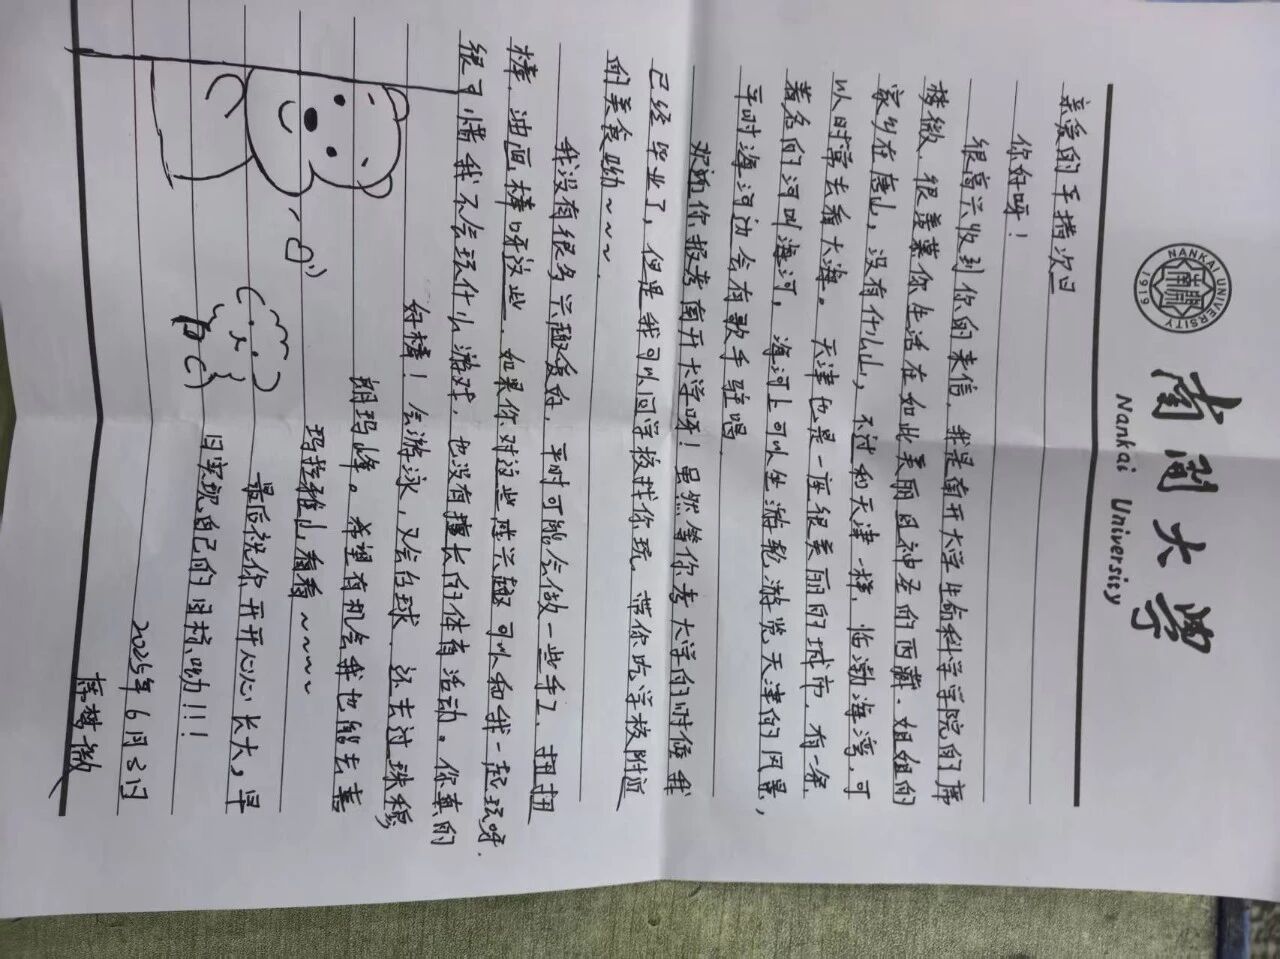 NANKAI UNIVERSITY
1919
南開大學
Nankai University
亲爱的手措次旦
你好呀！
很高兴收到你的来信，我是南开大学生命科学学院的席
梦微，很羡慕你生活在如此美丽且神圣的西藏，姐姐的
家乡在唐山，没有什么山，不过和天津一样，临渤海湾，可
以时常去看大海。天津也是一座很美丽的城市，有一条
著名的河叫海河，海河上可以坐游轮游览天津的风景，
平时海河边会有歌手驻唱。
欢迎你报考南开大学呀！虽然等你考大学的时候我
已经毕业了，但是我可以回学校找你玩，带你吃学校附近
的美食呦～～～
我没有很多兴趣爱好，平时可能会做一些手工，扭扭
棒，油画棒呀这些，如果你对这些感兴趣可以和我一起玩呀。
很可惜我不会玩什么游戏，也没有擅长的体育活动。你真的
好棒！会游泳，又会台球，还去过珠穆
朗玛峰。希望有机会我也能去喜
玛拉雅山看看～～～～
最后祝你开开心心长大，早
日实现自己的目标呦!!!
2025年6月3日
席梦微